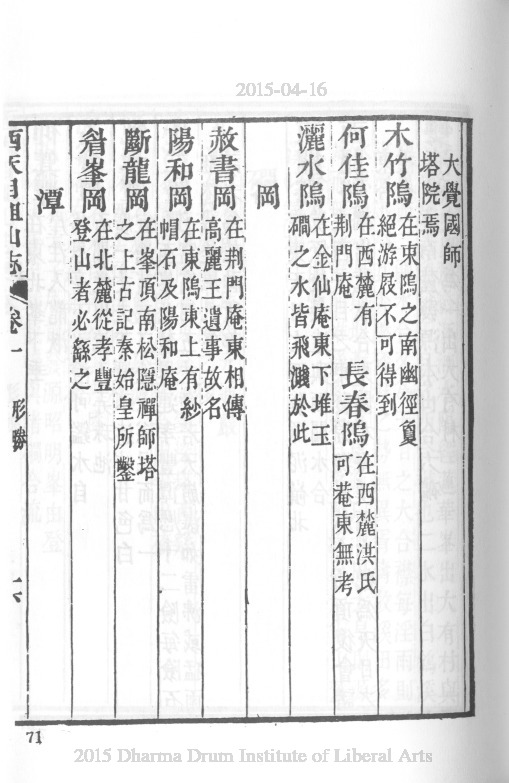 2015-04-16
大覺國師
塔院焉
木竹隖 在東隖之南幽徑夐
絕游屐不可得到
何佳隖 在西麓有
荆門庵
長春隖 在西麓洪氏
可菴東無考
灑水隖 在金仙庵東下堆玉
磵之水皆飛濺於此
岡
赦書岡 在荆門庵東相傳
高麗王遺事故名
陽和岡 在東隖上有紗
帽石及陽和庵
斷龍岡 在峯頂南松隱禪師塔
之上古記秦始皇所鑿
峯岡 在北麓從孝豐
登山者必繇之
潭
西天目祖山志 卷一 形勝 六
71
2015 Dharma Drum Institute of Liberal Arts